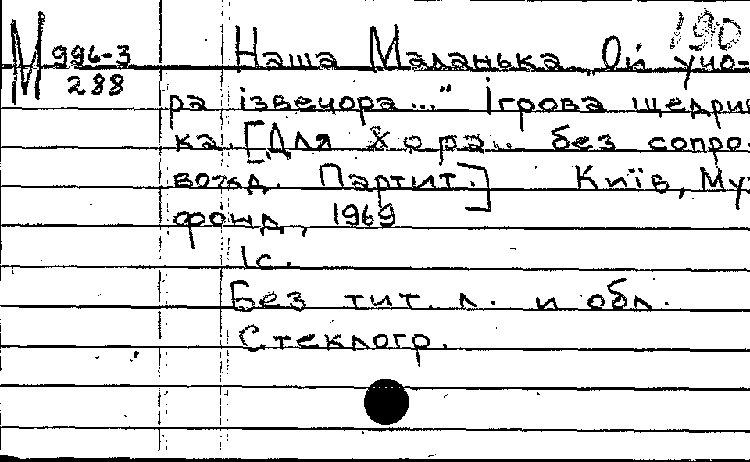 190
М 996-3
288
Наша Маланька „Ой учо-
ра ізвечора..." Ігрова щедрив
ка. [Для хора без сопро-
вожд. Партит.] Київ, Муз
фонд, 1969
1с.
Без тит. л. и обл.
Стеклогр.